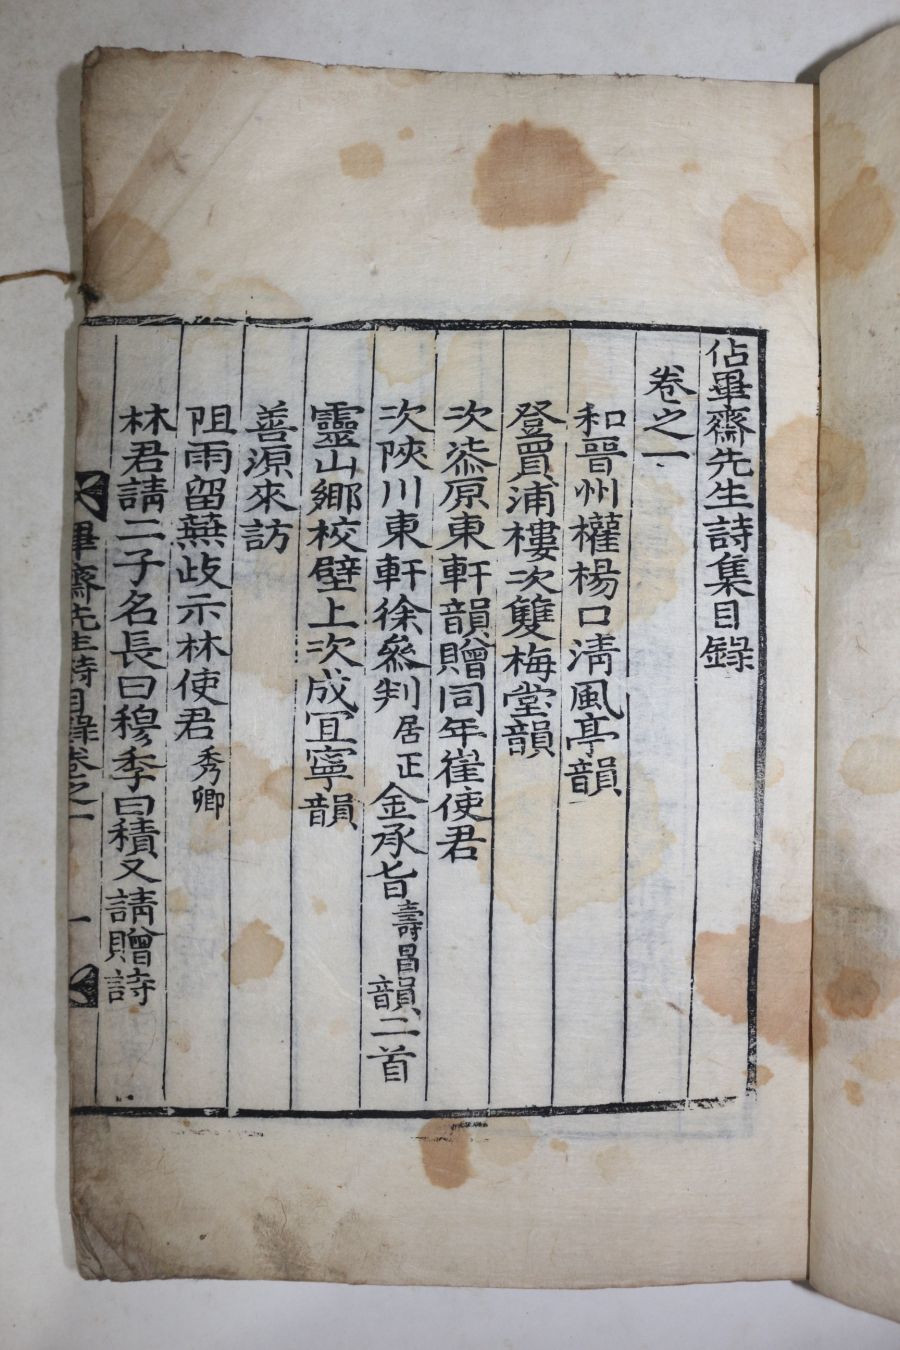 佔畢齋先生詩集目錄
卷之一
和晉州權楊口淸風亭韻
登買浦樓次雙梅堂韻
次柒原東軒韻贈同年崔使君
次陜川東軒徐叅判居正金承旨壽昌韻二首
靈山鄕校壁上次成冝寧韻
善源來訪
阻雨留蕪歧示林使君秀卿
林君請二子名長曰穆季曰積又請贈詩
畢齋先生詩目錄卷之一 一